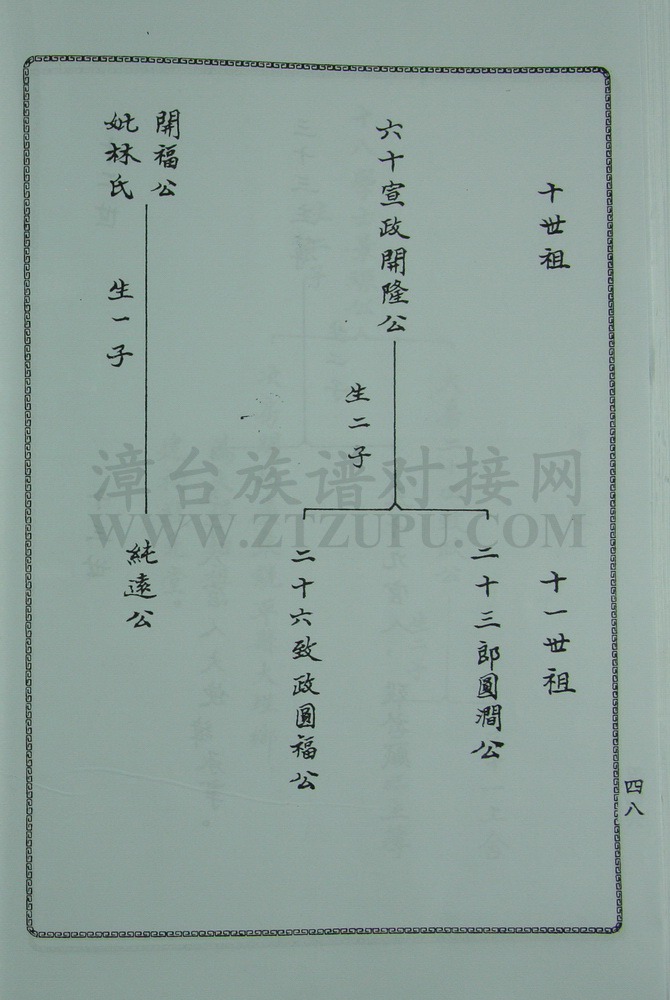 十世祖
六十宣政開隆公
生二子
開福公
妣林氏
生一子
十一世祖
二十三郎圓澗公
二十六致政圓福公
純遠公
四八
漳台族谱对接网
WWW.ZTZUPU.COM